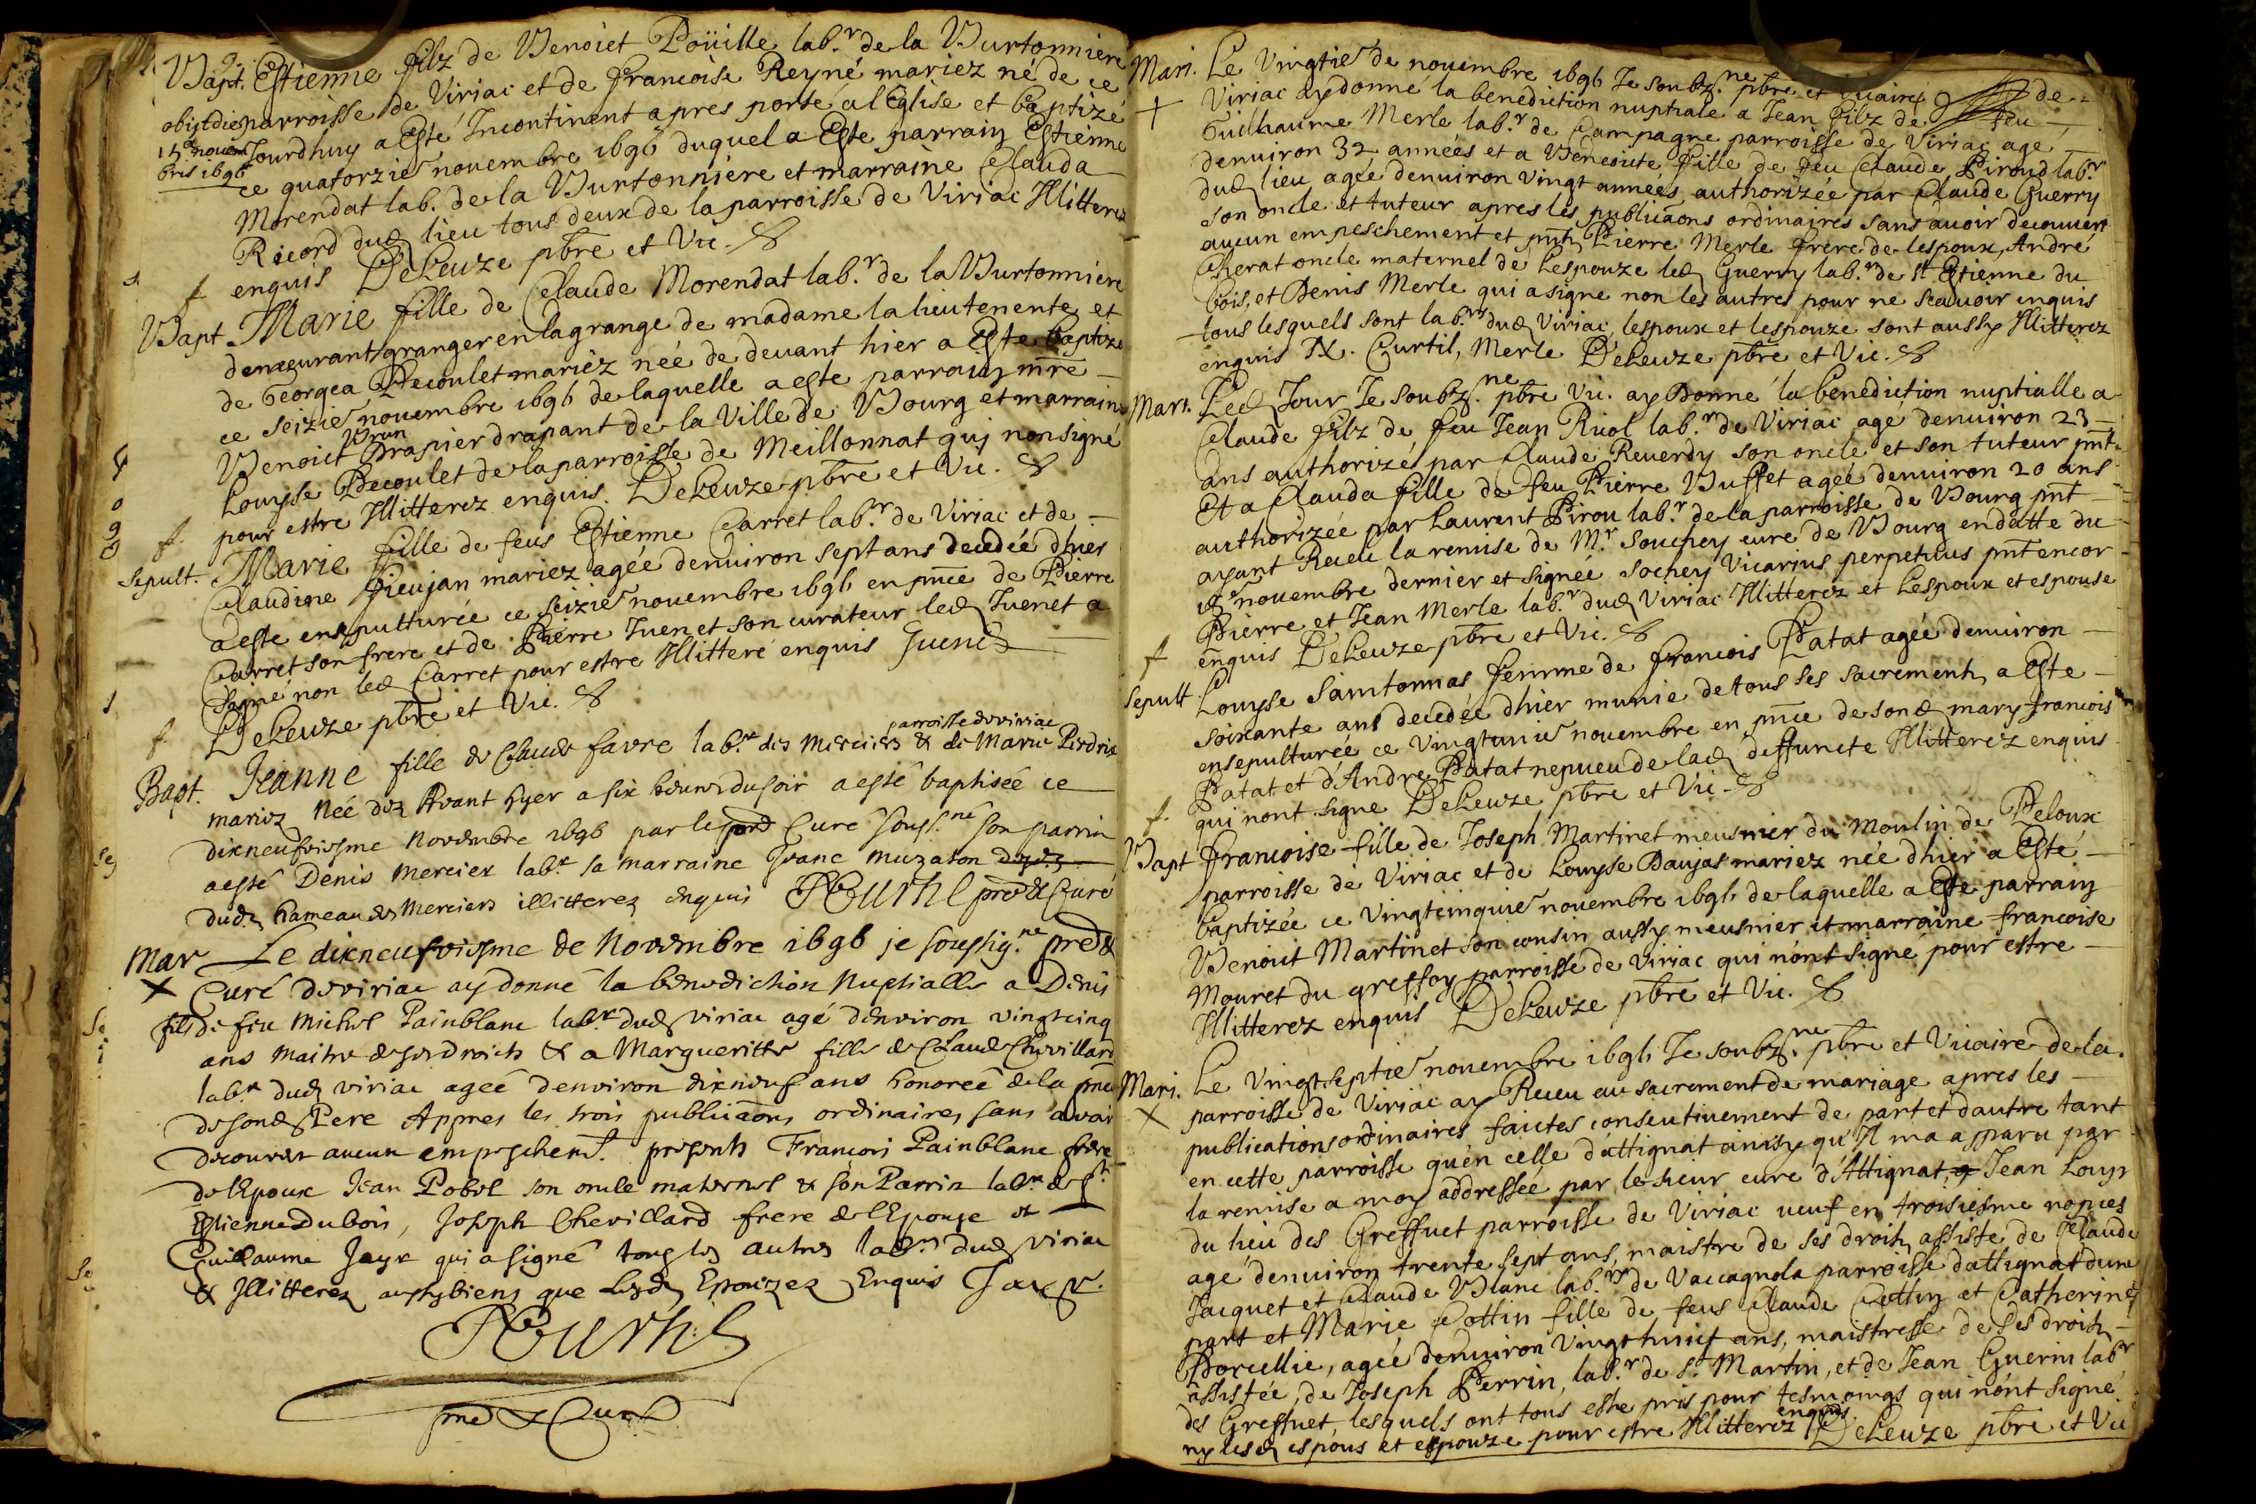 Bapt. Estienne filz de Benoict Poüille lab.r de la Burtonniere
parroisse de Viriac et de Francoise Reyné mariez né de ce
obijt die 15e nouembris 1696
Jourdhuy a Esté Incontinent apres porté a lEglise et baptizé
ce quatorzie nouembre 1696 duquel a Este parrain Estienne
Morendat lab. de la Burtonniére et marraine Clauda
Ricord dud lieu tous deux de la parroisse de Viriac Illitterez
enquis DeLeuze pbre et Vic.
Bapt Marie fille de Claude Morendat lab.r de la Burtonniere
demeurant granger en la grange de madame la lieutenente et
de Georgea Decoulet mariez née de deuant hier a Este baptizé
ce seizie nouembre 1696 de laquelle a este parrain mre
Benoict Brun Drapier drapant de la Ville de Bourg et marraine
Louyse Decoulet de la parroisse de Meillonnat qui non signé
pour estre Illitterez enquis. DeLeuze pbre et Vic.
Sepult. Marie fille de feus Estienne Carret lab.r de Viriac et de
Claudine Pieujan mariez agée denuiron sept ans decedée dhier
a este ensepulturée ce seizie nouembre 1696 en pnce de Pierre
Carret son frere et de Pierre Juenet son curateur led Juenet a
signé non led Carret pour estre Illitteré enquis Juenet
DeLeuze pbre et Vic.
Bapt. Jeanne fille de Claude favre lab.r des Merciers parroisse de viriac & de Marie Perdrix
mariez Née dez Avant hyer a six heures du soir a esté baptisée ce
dixneufviesme Novembre 1696 par le Curé souss.né son parrin
a esté Denis Mercier lab.r sa marraine Jeane Muzaton
dud hameau des Merciers illitterez enquis PCurthil prê & Curé
Mar Le dixneufviesme de Novembre 1696 je soussig.né prê &
Curé de viriac ay donné la benediction Nuptialle a Denis
fils de feu Michel Painblanc lab.r dud viriac agé denviron vingtcinq
ans Maitre de ses droicts & a Margueritte fille de Claude Chevillard
lab.r dud viriac ageé denviron dixneuf ans honoreé de la pnce
de sond Pere Appres les trois publicaons ordinaires sans avoir
decouvert aucun empeschemt. presents Francois Painblanc frere
de lEpoux Jean Pobel son oncle maternel & son Parrin lab.r de St
Estienne du bois, Joseph Chevillard frere de lEpouse et
Guillaume Jayr qui a signé tous les autres lab.rs dud viriac
& Illitterez aussybiens que lesd Epouzez Enquis Jayr.
PCurthil
prê & Curé
Mari. Le Vingtie de nouembre 1696 Je soubz.né pbre et Vicaire de
Viriac ay donné la benediction nuptiale a Jean filz de feu
Guilhaume Merle lab.r de Campagne parroisse de Viriac age
denuiron 32 années et a Benoite fille de feu Claude Piroud lab.r
dud lieu agée denuiron vingt années authorizée par Claude Guerry
son oncle et tuteur apres les publicaons ordinaires sans auoir decouuert
aucun empeschement et pnts Pierre Merle frere de lespoux, André
Cherat oncle maternel de Lespouze led Guerry lab.r de St Estienne du
bois, et Denis Merle qui a signe non les autres pour ne scauoir enquis
tous lesquels sont lab.rs dud Viriac, lespoux et lespouze sont aussy Illitterez
enquis N. Curtil, Merle DeLeuze pbre et Vic.
Mari. Led Jour Je soubz.né pbre Vic. ay Donné la benediction nuptialle a
Claude filz de feu Jean Ruol lab.r de Viriac agé denuiron 23
ans authorizé par Claude Reuerdy son oncle et son tuteur pnt.
Et a Clauda fille de feu Pierre Buffet agée denuiron 20 ans
authorizée par Laurent Pirou lab.r de la parroisse de Bourg pnt
ayant Receu la remise de M.r Souchey curé de Bourg en datte du
nouembre dernier et signée sochey Vicarius perpetuus pnt encor
Pierre et Jean Merle lab.r dud Viriac Illitterez et Lespoux et espouse
enquis DeLeuze pbre et Vic.
Sepult Louyse Saintonnas femme de francois Patat agée denuiron
soixante ans decedée dhier munie de tous ses sacrements a Este
ensepulturée ce Vingtunie nouembre en pnce de sond mary francois
Patat et d'Andre Patat nepueu de lad deffuncte Illitterez enquis
qui nont signe DeLeuze pbre et Vic.
Bapt francoise fille de Joseph Martinet meusnier du Moulin de Peloux
parroisse de Viriac et de Louyse Daujas mariez née dhier a Esté
baptizée ce Vingtcinquie nouembre 1696 de laquelle a Este parrain
Benoict Martinet son cousin aussy meusnier et marraine francoise
Mouret du greffoy parroisse de Viriac qui nónt signé pour estre
Illitterez enquis DeLeuze pbre et Vic.
Mari. Le Vingtseptie nouembre 1696 Je soubz.né pbre et Vicaire de la
parroisse de Viriac ay Receu au sacrement de mariage apres les
publications ordinaires faictes consecutiuement de part et dautre tant
en cette parroisse qu'en celle d'attignat ainsy qu'Il ma apparu par
la remise a moy addressée par le sieur curé d'Attignat, a Jean Louys
du lieu des Greffuet parroisse de Viriac ueuf en troisiesme nopces
agé denuiron trente sept ans, maistre de ses droits, assisté de Claude
Jacquet et Claude Blanc lab.rs de Vaccagnola parroisse dattignat dune
part et Marie Cottin fille de feus Claude Cottin et Catherine
Dorcellie, agée denuiron Vingthuict ans, maistresse de ses droits
assistée de Joseph Perrin, lab.r de St Martin, et de Jean Guerni lab.r
des Greffuet, lesquels ont tous este pris pour tesmoings qui nónt signé
ny lesd espous et espouze pour estre Illitterez enquis DeLeuze pbre et Vic